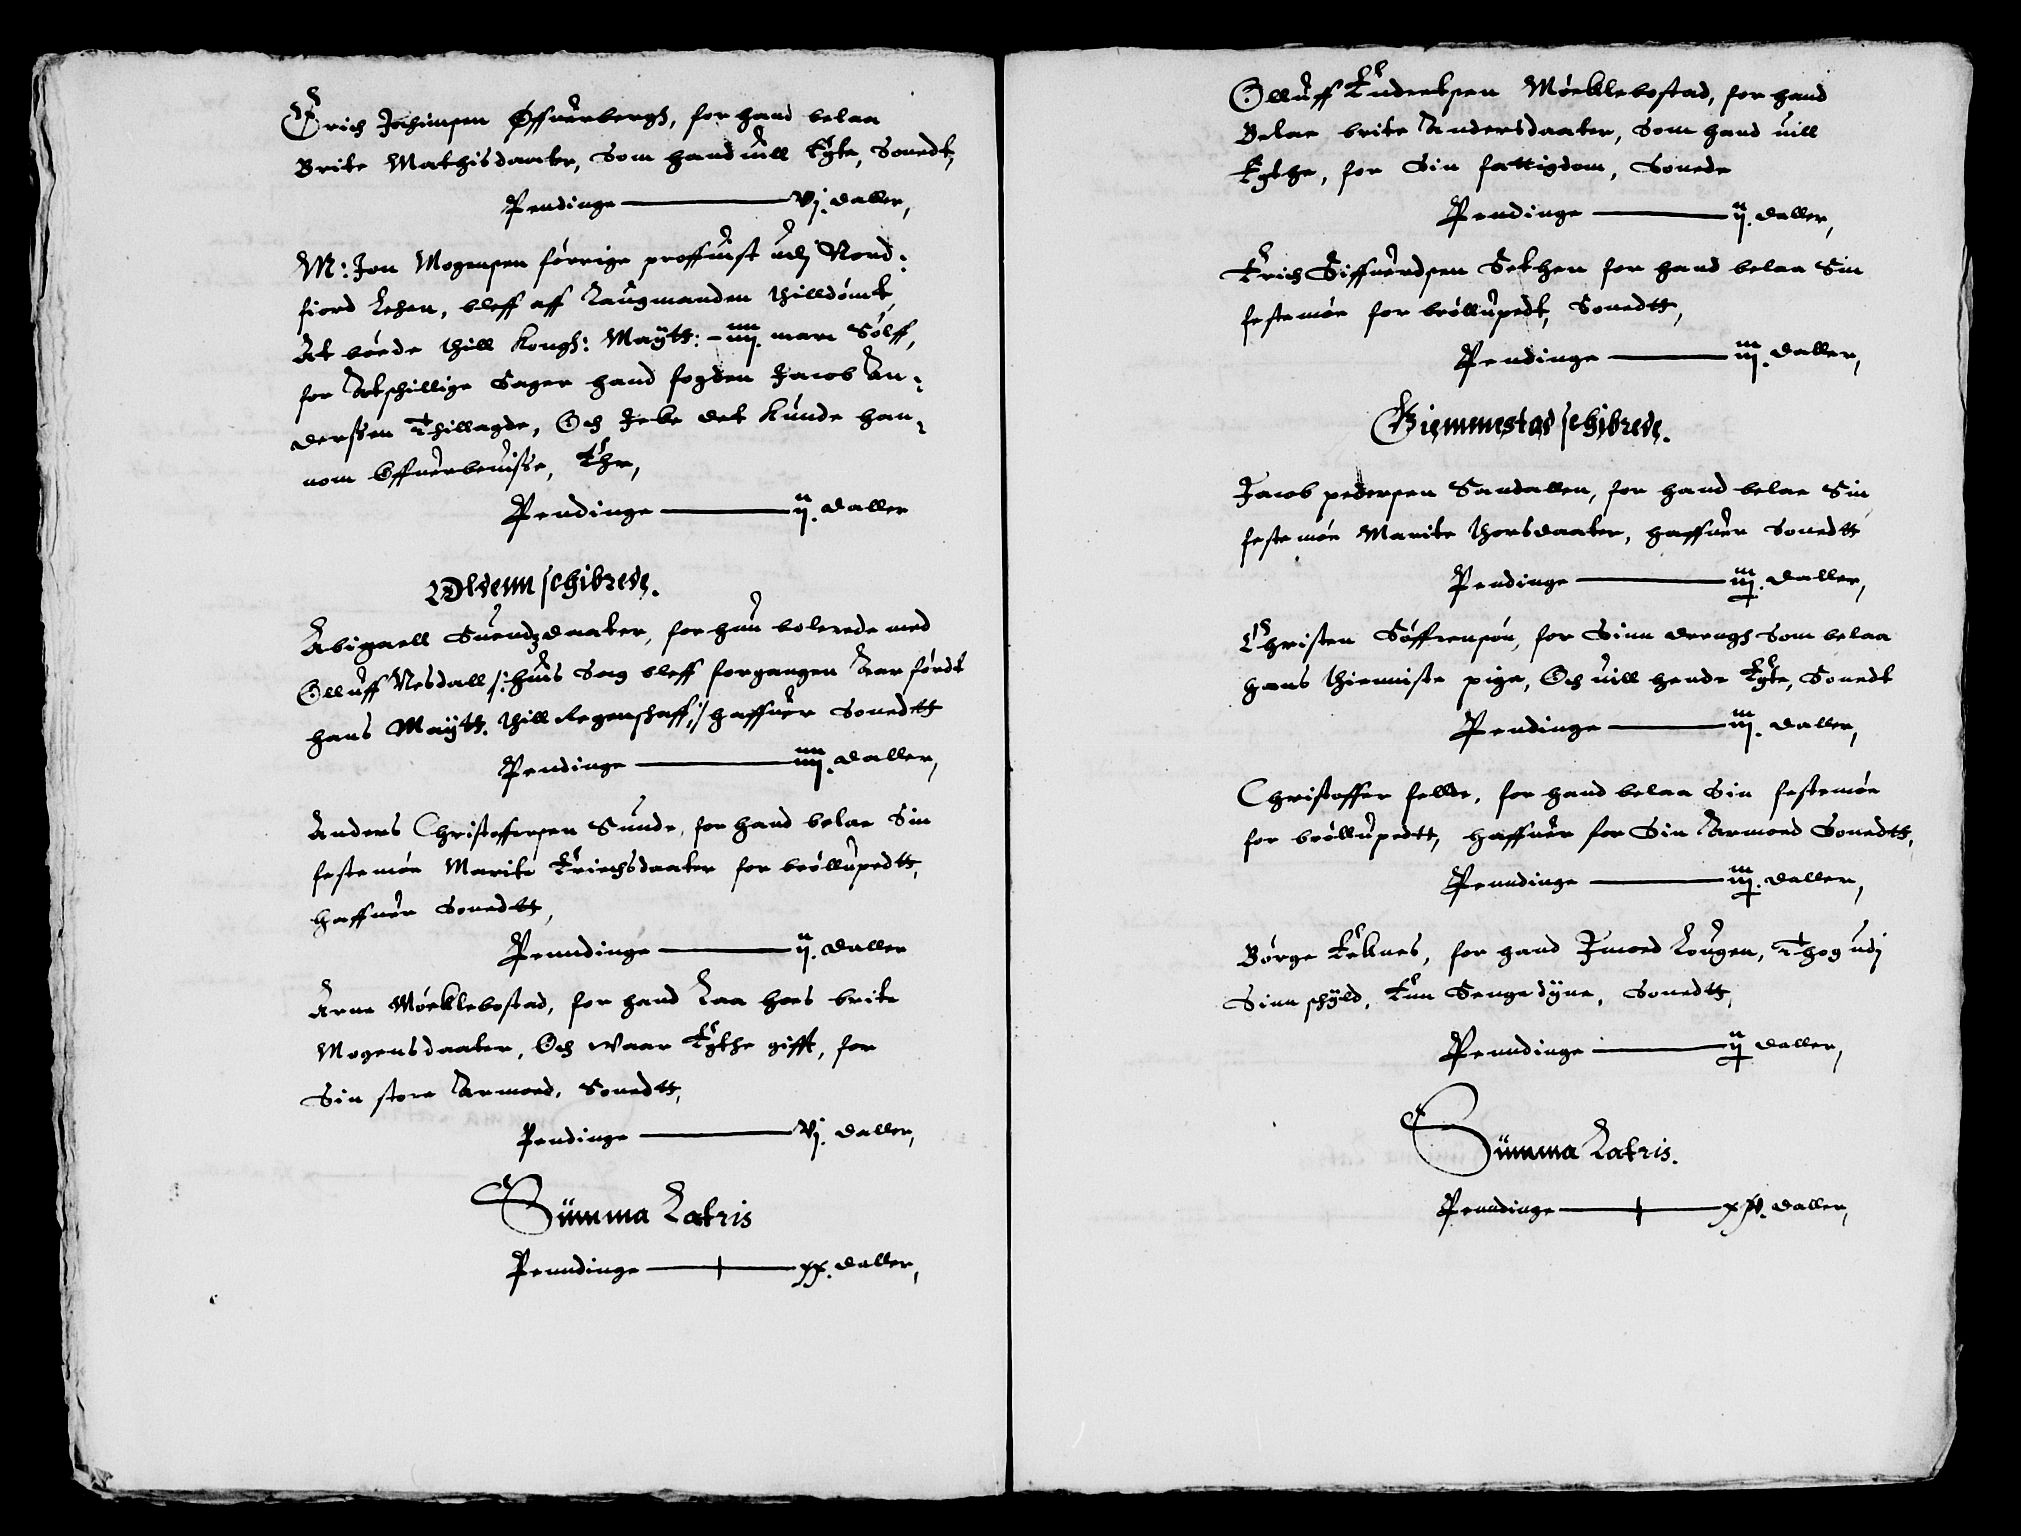 Erich Jochimsen Øffuerbergh, for hand belaa
Brite Mathisdaater, Som hand uill Egte, Sonedt,
Pendinge — vj. daller,
M: Jon Mogensen förrige proffuist udj Nord:
fiord Lehen, bleff aff Laugmanden thilldömt,
At böede thill Kongh: Maÿtt: – iiij. marc Sölff,
for Atschillige Sager hand fogden Jacob An:
derssen Thillagde, Och Icke det Kunde han:
nom Offuerbeuisse, Ehr,
Pendinge — ij. daller
Oldenn schibrede.
Abigaell Suendzdaater, for hun bolerede med
Olluff Nesdall /: huis Sag bleff forgangen Aar fördt
hans Maÿtt. thill Regenschaff :/ haffuer Sonedtt
Pendinge — iiij. daller,
Anders Christoffersen Sunde, for hand belae Sin
festemöe Marite Eriechsdaater for bröllupedtt,
haffuer Sonedtt,
Penndinge — ij. daller
Arne Möecklebostad, for hand Laa hoes brite
Mogensdaater, Och waar Egthe gifft, for
Sin store Armoed, Sonedtt,
Pendinge — vj. daller,
Summa Latris
Penndinge — xx. daller,
Olluff Endrecksen Möecklebostad, for hand
Belae brite Andersdaater, Som hand uill
Egthe, for Sin fattigdom, Sonede
Pendinge — ij. daller,
Erich Siffuerdsen Sethen for hand belaa Sin
festemöe for bröllupedt, Sonedtt,
Pendinge — iij. daller,
Giemmestad schibrede.
Jacob pedersen Sandallen, for hand belae Sin
festemöe Marite thorsdaater, haffuer Sonedtt
Pendinge — iij. daller,
Christen Söffrensön, for Sinn drengh Som belaa
hans thienniste pige, Och uill hende Egte, Sonedt
Pendinge — iij. daller,
Christoffer fellde, for hand belaa Sin festemöe
for bröllupedtt, haffuer for Sin Armoed Sonedtt,
Penndinge — iij. daller,
Börge Ecknes, for hand Imoed Lougen, Thog udj
Sinn schÿld, Enn Sengedÿne, Sonedtt,
Penndinge — ij daller,
Summa Latris.
Penndinge — xv. daller,